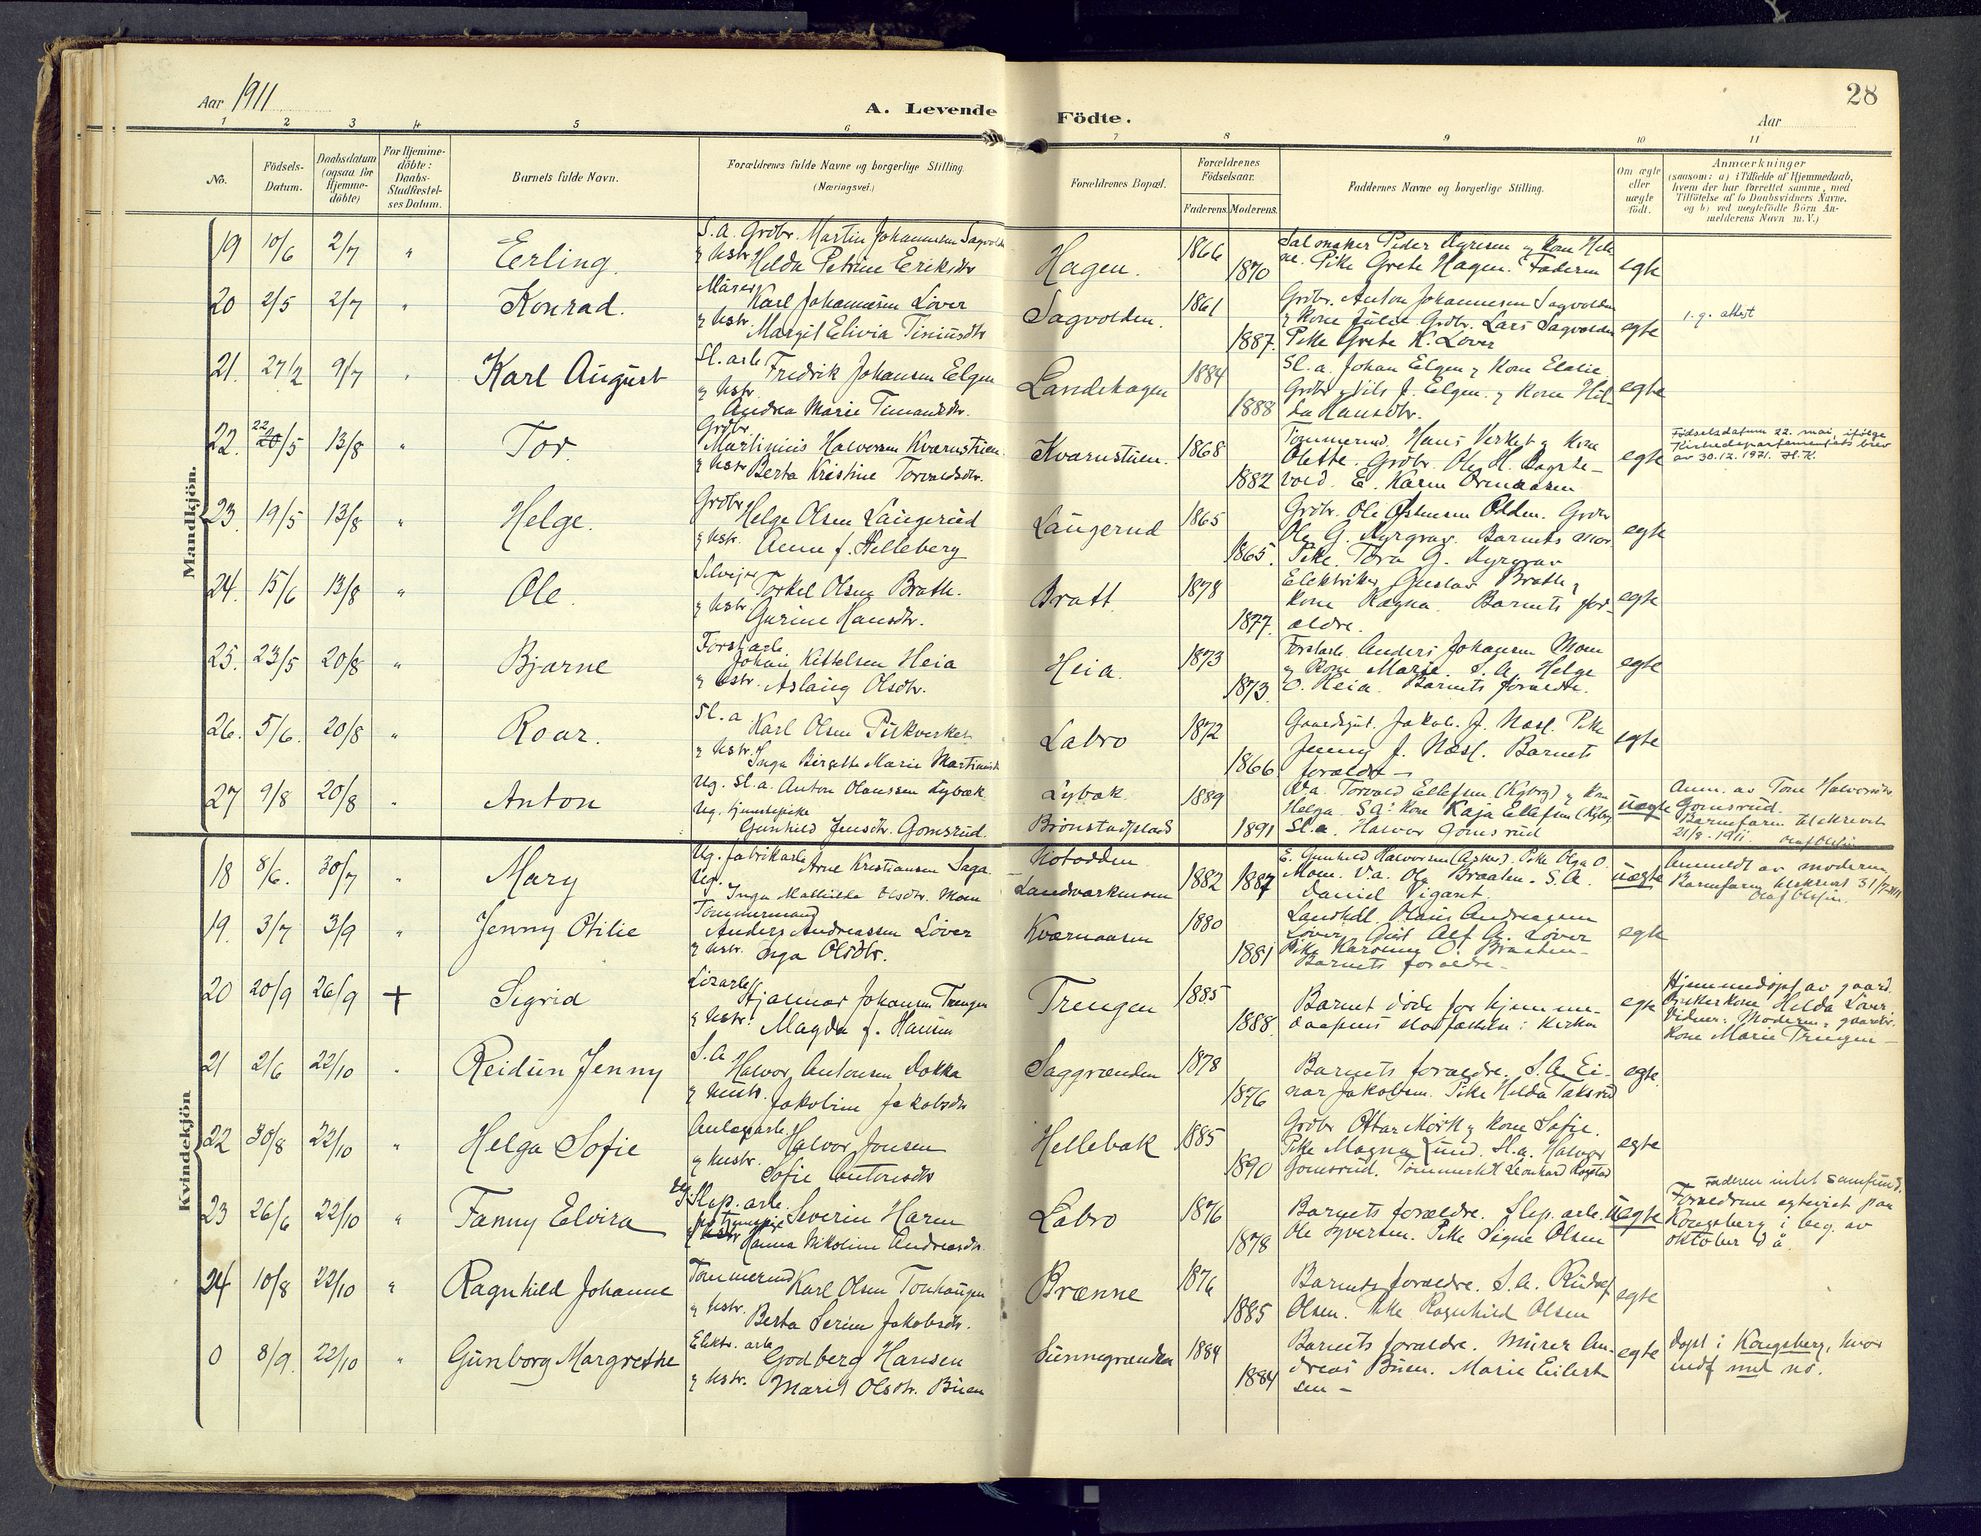 Aar 1911
A. Levende Födte.
Aar
28
1 2 3 4 5 6 7 8 9 10 11
No.
Födsels-Datum.
Daabsdatum (ogsaa for Hjemmedöbte)
For Hjemmedöbte: Daabs-Stadfæstelses Datum.
Barnets fulde Navn.
Forældrenes fulde Navne og borgerlige Stilling. (Næringsvei.)
Forældrenes Bopæl.
Forældrenes Födselsaar.
Faderens. Moderens.
Faddernes Navne og borgerlige Stilling.
Om ægte eller uægte födt.
Anmærkninger
(saasom: a) i Tilfælde af Hjemmedaab, hvem der har forrettet samme, med Tilföielse af to Daabsvidners Navne. og b) ved uægtefödte Börn Anmelderens Navn m. V.)
Mandkjön.
19 10/6 2/7 " Erling.
S.a. Grdbr. Martin Johannesen Sagvolden
y hstr. Helda Petrine Eriksdtr
Hagen. 1866 1870
Pike Grete Hagen. Faderen
egte
20 2/5 2/7 " Konrad.
Karl Johannesen Løver
y hstr. Margit Elivia
Sagvolden. 1861 1887.
Grdbr. Anton Johannesen Sagvolden
y kone Julie Grdbr. Lars Sagvolden
Pike Grete K. Løver
egte
21. 27/2 9/7 " Karl August
Sl. arb. Fredrik Johansen Eelgen
y hstr. Andrea Marie
Landshagen 1884 1888
Sl. a. Johan Eelgen y kone Elelie.
Grdbr. Nils J. Eelgen. y kone Hilda Hansdtr.
egte
22. 22 20/5 13/8 " Tor.
Grdbr. Martinius Halvorsen Kvarnstuen
y hstr Berta Kristine Torvaldsdtr.
Kvarnstuen. 1868 1882
Tommermd. Hans Verket y kone
Olette. Grdbr. Ole H.
egte
Fødselsdatum 22. mai, ifølge
Kirkedepartementets brev
av 30.12.1971. H.K.
23. 19/5 13/8 " Helge.
Grdbr Helge Olsen Laugerud
y hstr. Anne f. Helleberg
Laugerud 1865 1865.
Ole G. Myrgrav. Barnets mor.
Pike. Tora G. Myrgrav
egte
24. 15/6 13/8 " Ole.
Torkel Olsen Bratt.
y hstr. Gurine Hansdtr.
Bratt. 1878 1877.
Elektriker Gustav Bratt y
kone Ragna. Barnets forældre.
egte
25. 23/5 20/8 " Bjarne
Forstarb. Johan Kittelsen Heia
y hstr. Aslaug Olsdtr.
Heia. 1873 1873
Forstarb. Anders Johansen Moen
y kone Marie. S.A. Helge
O. Heia. Barnets forældre.
egte
26. 5/6. 20/8 " Roar.
Sl. a. Karl Olsen Pikverket
y hstr. Inga Birgitte Marie
Labro 1872 1866
Jakob. J. Næsl. Pike
Jenny J. Næsl. Barnets
forældre
egte
27 9/8 20/8 " Anton
Ug. sl.a. Anton Olaussen Lybæk
Ug. tjenestepike Gunhild Jensdtr. Gomsrud.
Lybæk. Brönstadplads 1889 1891
V.a. Torvald Ellefsen (Kyberg) y kone
Helga. S.a. kone Kaja Ellefsen
Sl.a. Halvor Gomsrud
uegte
Anm. av Tone Halvorsdtr
Gomsrud.
21/8-1911
Kvindekjön
18 8/6. 30/7 " Mary
Ug. fabrikarb. Arne Kristiansen Saga
Ug. Inga Mathilde Olsdtr. Moen
Notodden. Landsverksmoen 1882 1887
Moen. V.a. Ole Braaten. S.A.
Daniel Vigant.
uegte
Anmeldt av moderen
19. 3/7 3/9 " Jenny Otilie
Tommermand Anders Andreassen Løver
y hstr. Inga Olsdtr.
Kværnaasen 1880 1881
Landhdl. Olaus Andreassen
Løver. Gut Alf A. Løver
Barnets forældre.
egte
20 20/9 26/9 + Sigrid
Hjalmar Johansen Trengen
y hstr. Magda f. Hansen
Trengen 1885 1888.
Barnet døde før hjemmedaapens stadfæstelse i kirken
egte
Hjemmedøpt av gaardbrukerkone Helda Løver.
Vidner: Moderen, gaardbr.
kone Marie Trengen
21 2/6 22/10 " Reidun Jenny
S.A. Halvor Antonsen Dokka
y hustr. Jakobine Jakobsdtr
Saggrænden 1878 1876
Barnets forældre. S.A. Einar Jakobsen. Pike Helda
egte
22 30/8 22/10 " Helga Sofie
Anlegsarb. Halvor Jonsen
y hustr. Sofie Antonsdtr
Hellebæk 1885 1890
Grdbr Ottar Mørk y kone Sofie.
Pike Magna Lund. Sl.a. Halvor
Gomsrud.
egte
23 26/6 22/10 " Fanny Elvira
Slip. arb. Severin Haren
Hanna Nikoline Andreasdtr.
Labro 1876 1878
Barnets forældre. Slip. arb.
Ole Syversen. Pike Signe Olsen
uegte
Faderen intet samfund.
Forældrene egteviet paa
Kongsberg i beg. av
oktober d.å.
24 10/8 22/10 " Ragnhild Johanne
Tommermd Karl Olsen Tonhaugen
y hstr. Berta Serine Jakobsdtr.
Brænne 1876 1885
Barnets forældre. S.a. Rudolf
Olsen. Pike Ragnhild Olsen
egte
0 8/9. 22/10 " Gunborg Margrethe
Elektr. arb. Godberg Hansen
y hstr. Marit Olsdtr. Buen
Sunnegrænden 1884 1884
Barnets forældre. Murer Andreas Buen. Marie Eilertsen
egte
Døpt i Kongsberg, hvor
indf med no.